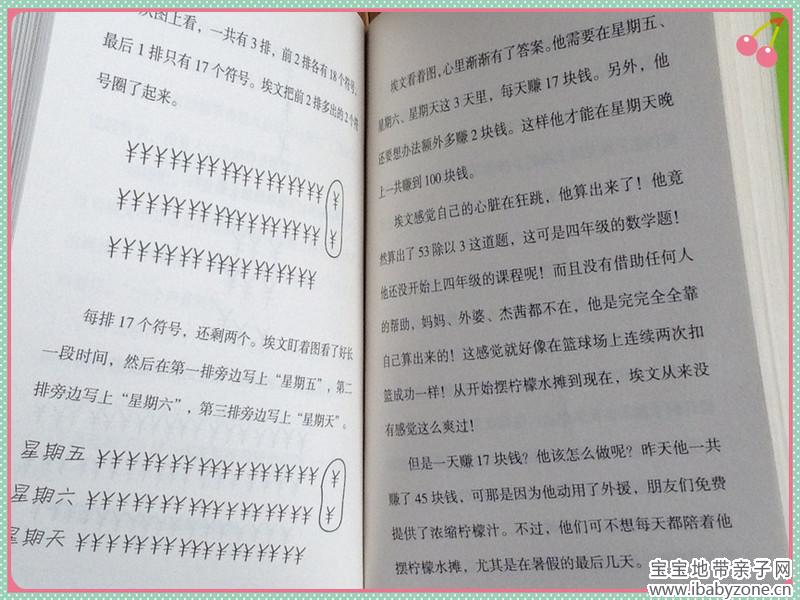 从图上看，一共有3排，前2排各有18个符号，
最后1排只有17个符号。埃文把前2排多出的2个符
号圈了起来。
¥¥¥¥¥¥¥¥¥¥¥¥¥¥¥¥¥ ¥
¥¥¥¥¥¥¥¥¥¥¥¥¥¥¥¥¥ ¥
¥¥¥¥¥¥¥¥¥¥¥¥¥¥¥¥¥
每排17个符号，还剩两个。埃文盯着图看了好长
一段时间，然后在第一排旁边写上“星期五”，第二
排旁边写上“星期六”，第三排旁边写上“星期天”。
星期五 ¥¥¥¥¥¥¥¥¥¥¥¥¥¥¥¥¥ ¥
星期六 ¥¥¥¥¥¥¥¥¥¥¥¥¥¥¥¥¥ ¥
星期天 ¥¥¥¥¥¥¥¥¥¥¥¥¥¥¥¥¥
埃文看着图，心里渐渐有了答案。他需要在星期五、
星期六、星期天这3天里，每天赚17块钱。另外，他
还要想办法额外多赚2块钱。这样他才能在星期天晚
上一共赚到100块钱。
埃文感觉自己的心脏在狂跳，他算出来了！他竟
然算出了53除以3这道题，这可是四年级的数学题！
他还没开始上四年级的课程呢！而且没有借助任何人
的帮助，妈妈、外婆、杰茜都不在，他是完完全全靠
自己算出来的！这感觉就好像在篮球场上连续两次扣
篮成功一样！从开始摆柠檬水摊到现在，埃文从来没
有感觉这么爽过！
但是一天赚17块钱？他该怎么做呢？昨天他一共
赚了45块钱，可那是因为他动用了外援，朋友们免费
提供了浓缩柠檬汁。不过，他们可不想每天都陪着他
摆柠檬水摊，尤其是在暑假的最后几天。
宝宝地带亲子网
www.ibabyzone.cn